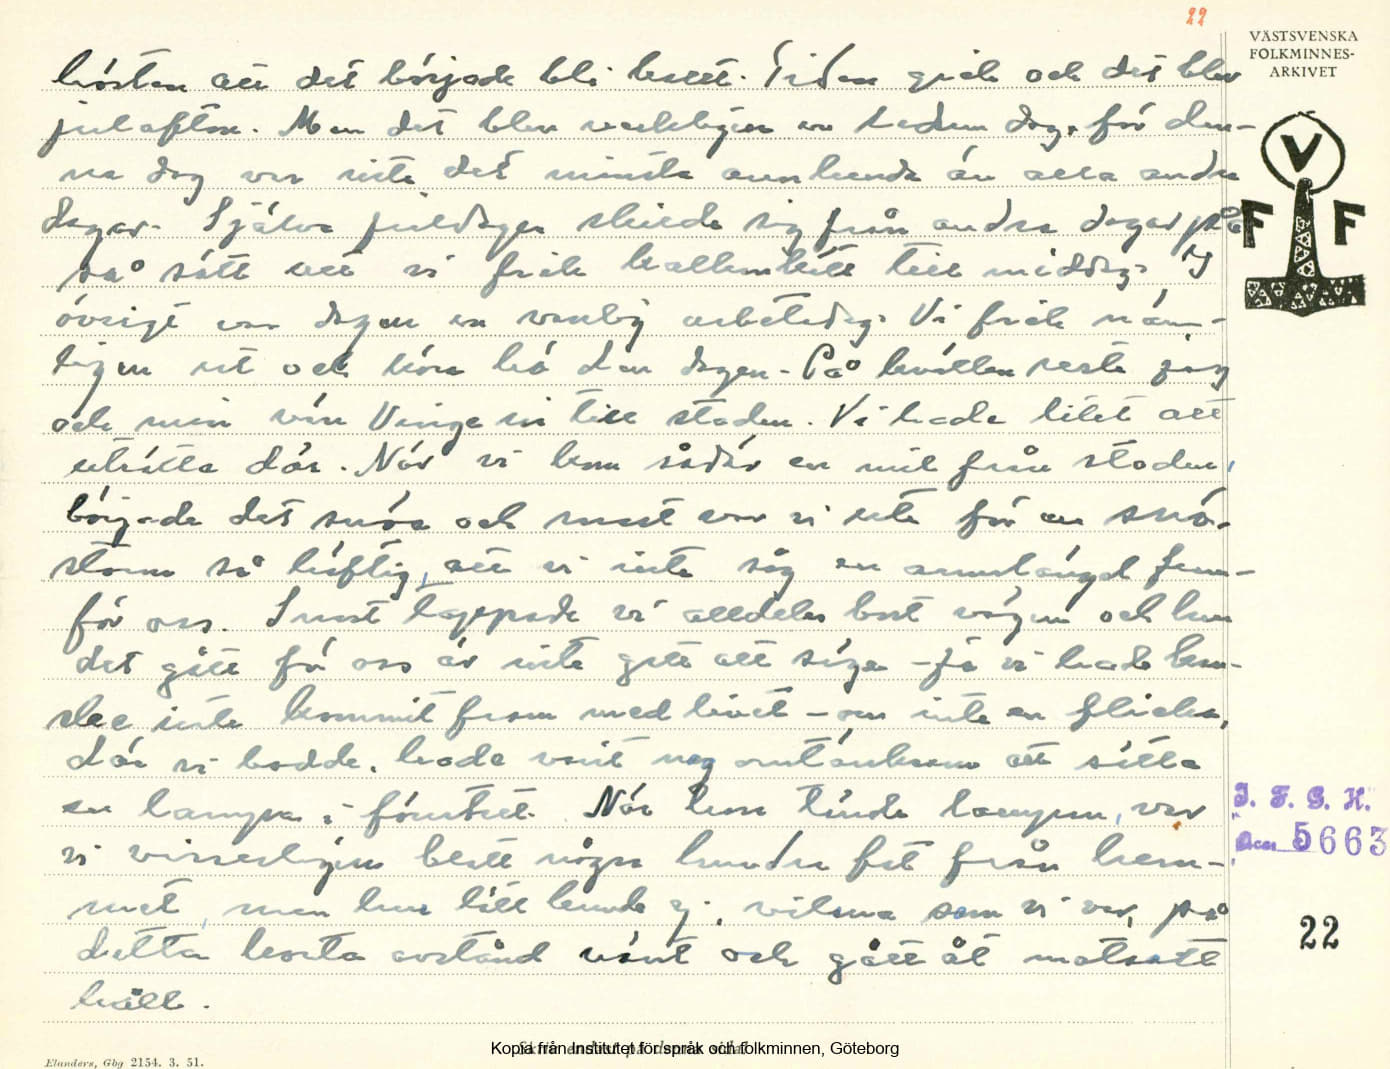 22
VÄSTSVENSKA
FOLKMINNES-
ARKIVET
hösten att det började bli kallt. Tiden gick och det blev
julafton. Men det blev verkligen en ledsam dag, för den-
na dag var inte det minsta annorlunda än alla andra
dagar. Själva juldagen skilde sig från andra dagar på
så sätt att vi fick kalkonkött till middag. I
övrigt var dagen en vanlig arbetsdag. Vi fick näm-
ligen ut och köra hö den dagen. På kvällen reste jag
och min vän Vinge in till staden. Vi hade litet att
uträtta där. När vi kom sådär en mil från staden,
började det snöa och snart var vi ute för en snö-
storm så häftig, att vi inte såg en armslängd fram-
för oss. Snart tappade vi alldeles bort vägen och hur
det gått för oss är inte gott att säga - ja vi hade kan-
ske inte kommit fram med livet - om inte en flicka,
där vi bodde, hade varit nog omtänksam att sätta
en lampa i fönstret. När hon tände lampan, var
vi visserligen blott några hundra fot från hem-
met, men hur lätt kunde ej, vilsna som vi var, på
detta korta avstånd vänt och gått åt motsatt
håll.
V
F F
I. F. G. H.
Acc. 5663
22
Kopia från Institutet för språk och folkminnen, Göteborg
Elanders, Gbg 2154. 3. 51.